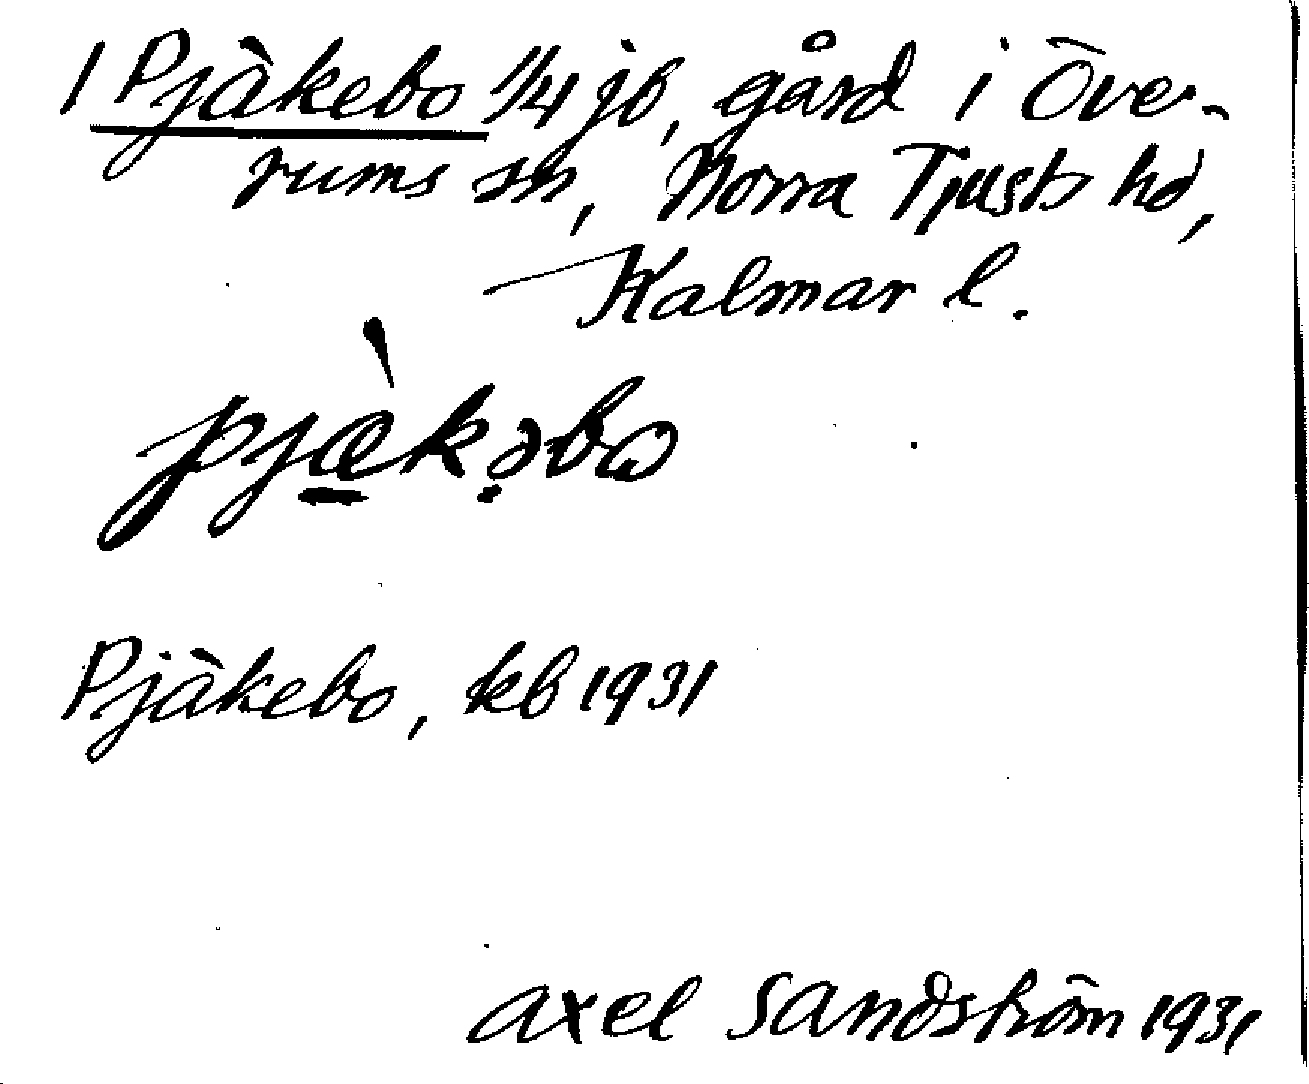 1 Pjäkebo 1/4 jb, gård i Öve-
rums sn, Norra Tjusts hd,
Kalmar l.
pjæ̠̀kə̣bω
Pjäkebo, kb 1931
Axel Sandström 1931